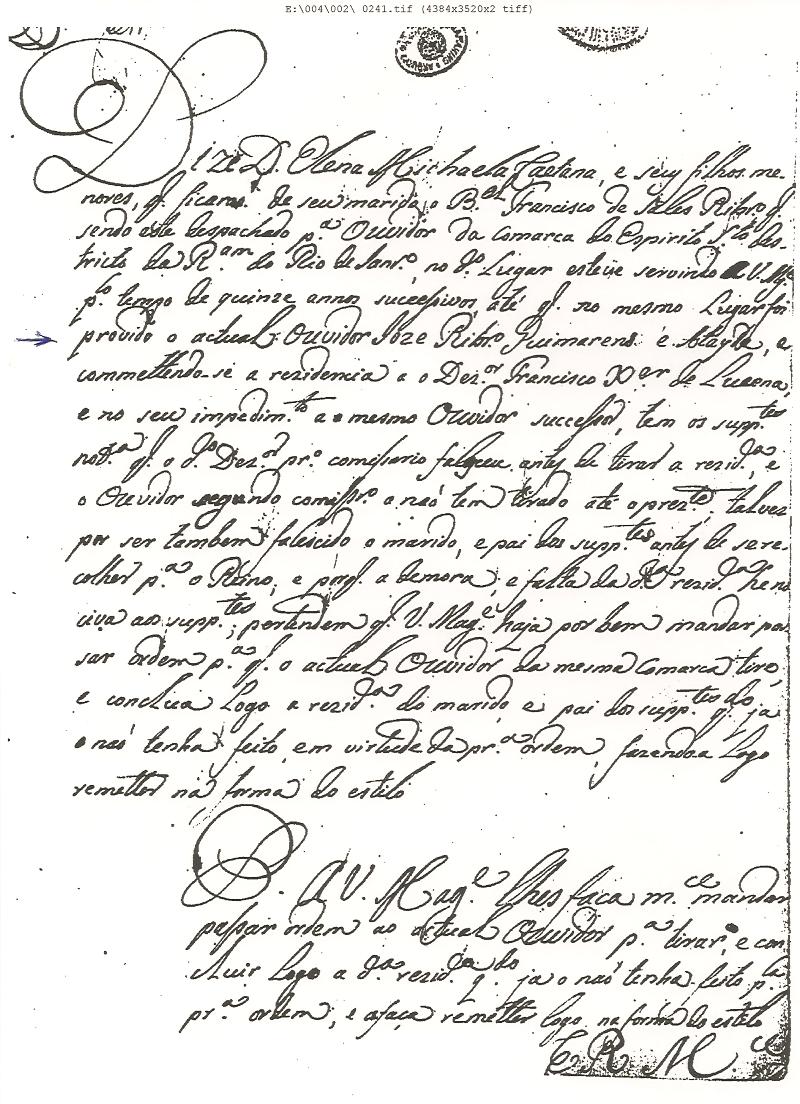 E:\004\002\ 0241.tif (4384x3520x2 tiff)
Dize D. Elena Michaela Caetana, e seus filhos me-
nores, q. ficaraõ de seu marido o B.el Francisco de Sales Ribro. q.
sendo este despachado p.a Ouvidor da comarca do Espirito S.to des-
tricto da R.am do Rio de Janr.o, no d.o Lugar esteve servindo a V. Mg.e
p.lo tempo de quinze annos sucessivos, até q. no mesmo Lugar foi
provido o actual Ouvidor Joze Ribr.o Guimarens e Atayde, e
commettendo-se a rezidencia a o Dez.or Francisco X.er de Lucena,
e no seu impedim.to a o mesmo Ouvidor successor, tem os supp.tes
not.a q. o d.o Dez.or pr.o comisario faleceu antes de tirar a rezid.a, e
o Ouvidor segundo comissr.o a naõ tem tirado até o prez.te, talvez
por ser tambem falescido o marido, e pai dos supp.tes antes de se re-
colher p.a o Reino, e porq. a demora, e falta da d.a rezid.a he no
civa aos supp.tes, pertendem q. V. Mag.e haja por bem mandar pas
sar ordem p.a q. o actual Ouvidor da mesma comarca tire,
e conclua Logo a rezid.a do marido, e pai dos supp.tes do q. ja
o naõ tenha feito, em virtude da pr.a ordem, fazendo-a Logo
remetter na forma do estilo
P. A V. Mag.e lhes faca m.ce mandar
passar ordem ao actual Ouvidor p.a tirar, e con
cluir Logo a d.a rezid.a do q. ja o naõ tenha feito p.la
pr.a ordem, e a faça remetter logo na forma do estilo
E R M.ce